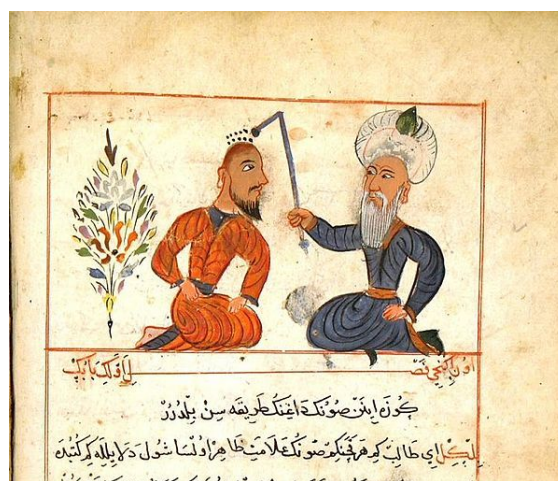 اون اكنجي فصل اولكي بابك
كوزه اينن صونك داغنك طريقه سن بلدرر
بلكل اي طالب كم هر قچنكم صونك علامت ظاهر اولسا شول دلايلله كم كتبده